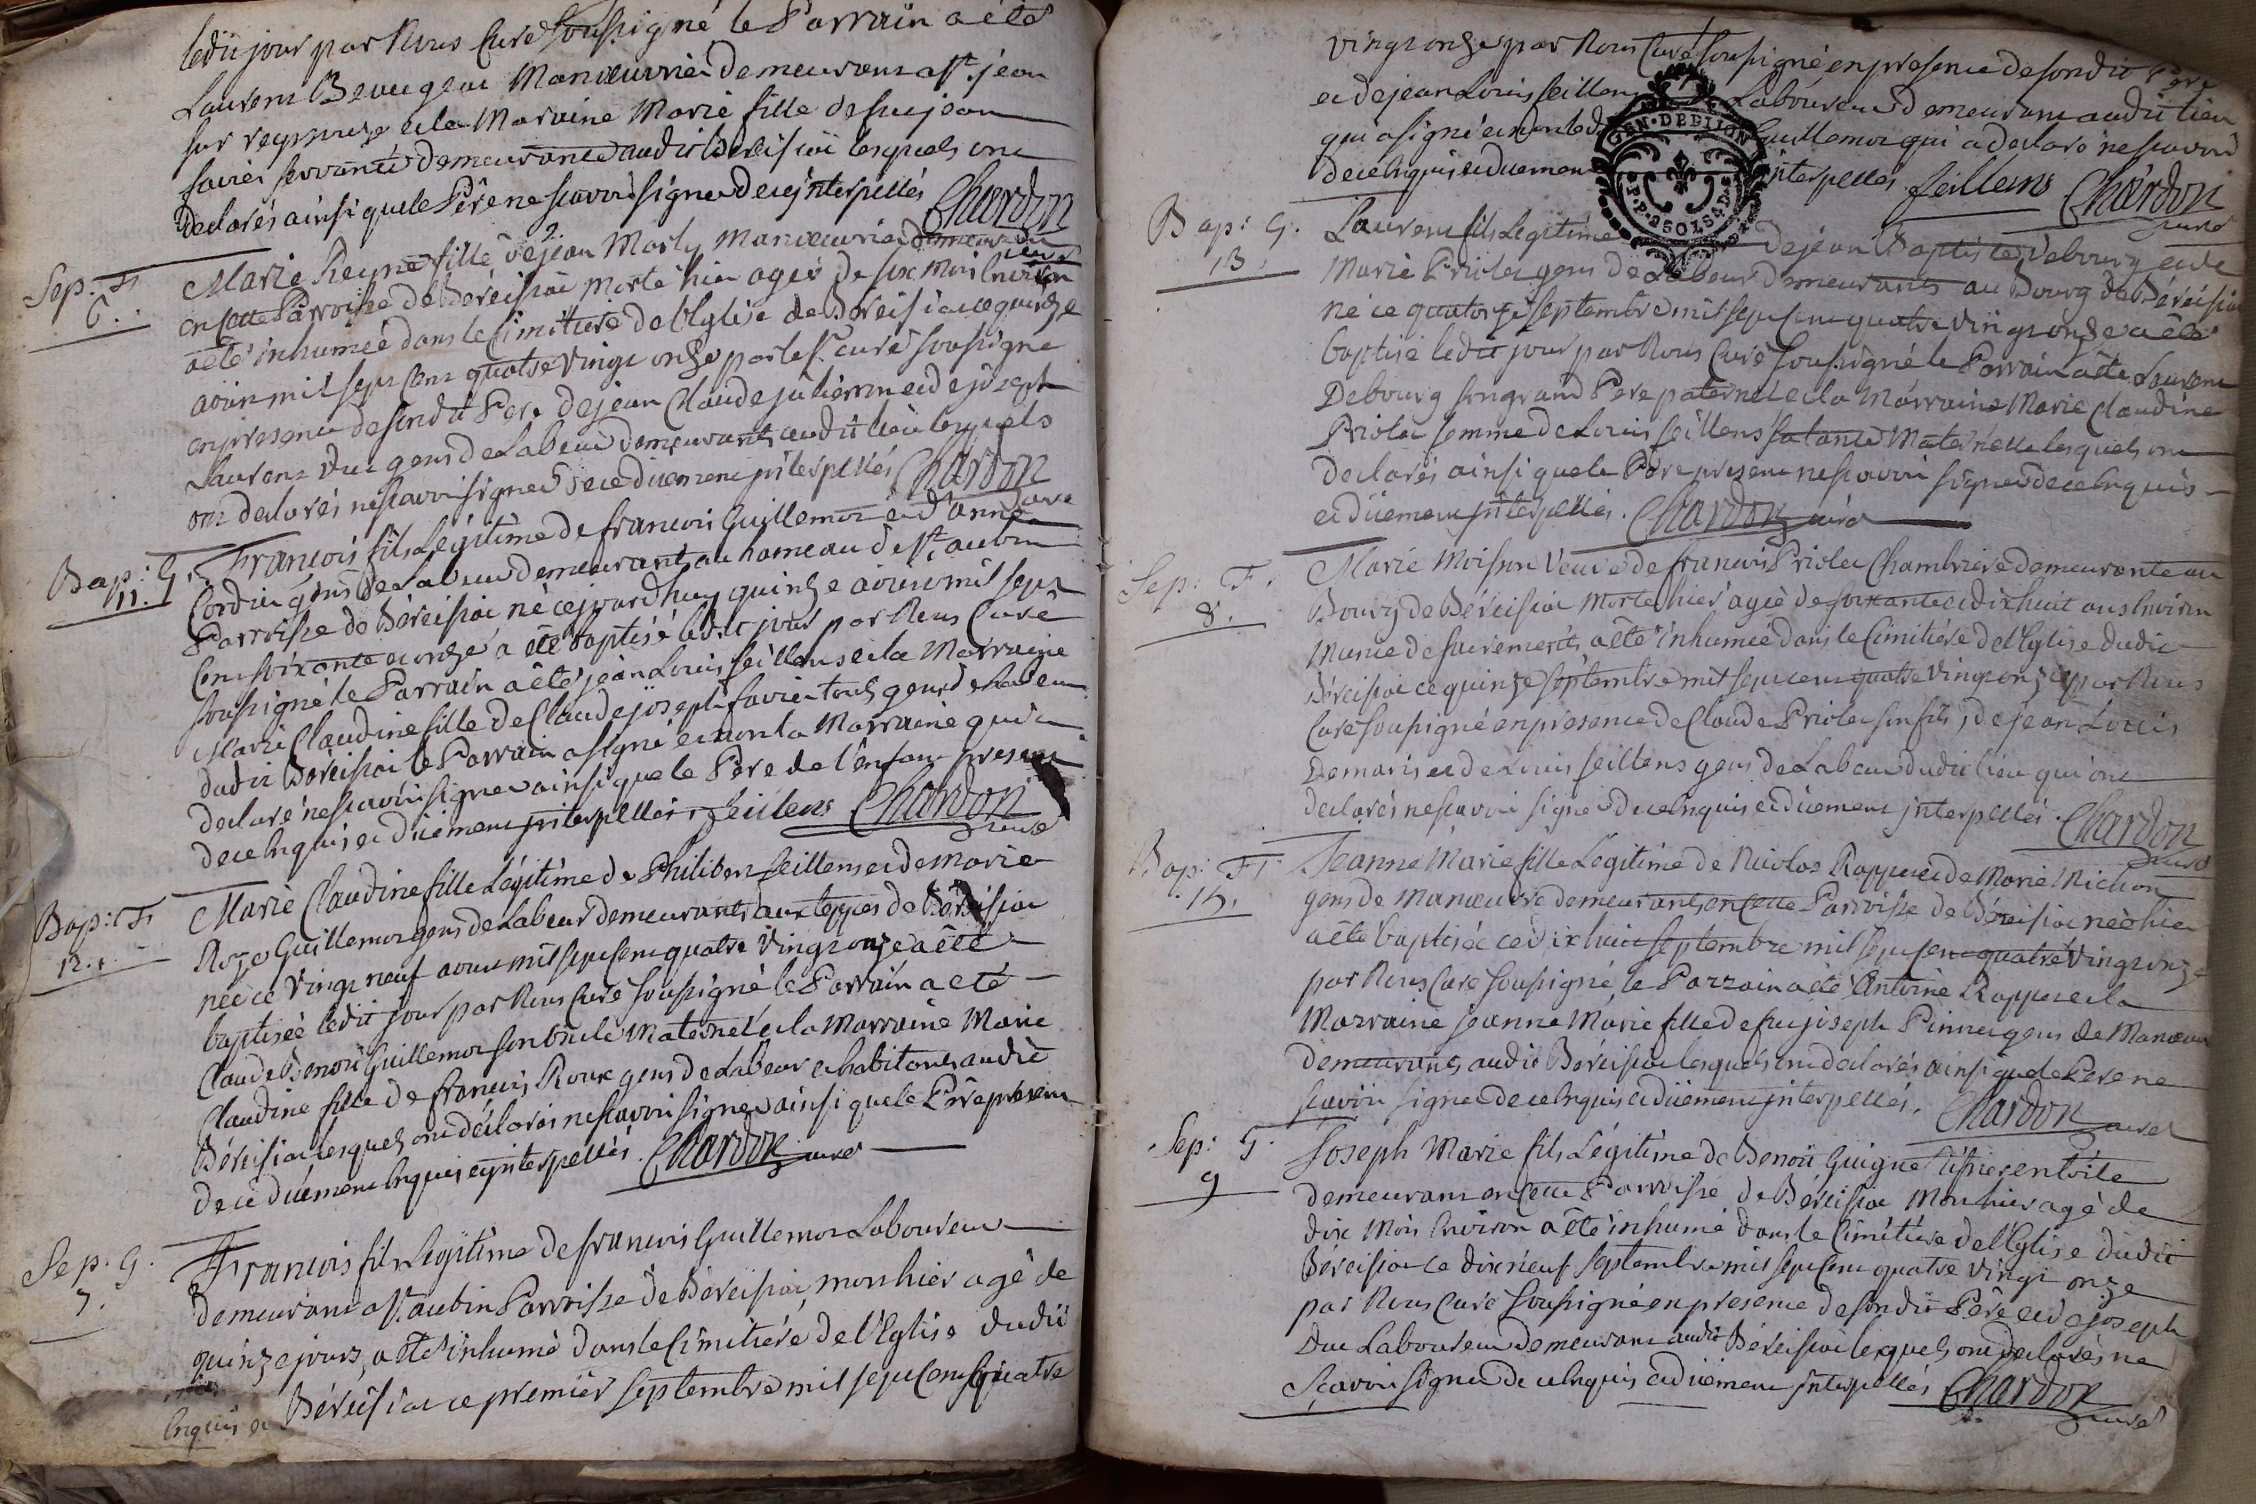 ledit jour par Nous Curé soussigné le Parrain a été
Laurent Beaugeai Manoeuvrier demeurant a St. jean
sur reyssouze et la Maraine Marie fille de feu jean
favier servante demeurante audit Béreisiai lesquels ont
declarés ainsi que le Pére ne scavoir signer de ce jnterpellés Chardon
curé
Sep. F.
6.
Marie Reyne fille de jean Morly Manoeuvrier demeurant
en cette Parroisse de Béreisiai morte hier agée de six mois environ
a été inhumée dans le Cimitiere de l'Eglise de Béreisiai ce quinze
aout mil sept cent quatre vingt onze par le sr. curé soussigné
en presence de sondit Pere de jean Claude julierme et de joseph
Laurent Duc gens de Labeur demeurants audit lieu lesquels
ont declarés ne scavoir signer de ce duement jnterpellés Chardon
curé
Bap: G.
11.
Francois fils Légitime de francois Guillemot et d'anne
Cordier gens de Labeur demeurant au hameau de St. aubin
Parroisse de Béreisiai né cejourd'huy quinze aout mil sept
Cent soixante et onze a été baptisé ledit jour par Nous Curé
soussigné le Parrain a été jean Louis Seillens et la Marraine
Marie Claudine fille de Claude joseph favier tous gens de Labeur
dudit Béreisiai le Parrain a signé et non la Marraine qui a
declaré ne scavoir signer ainsi que le Pére de l'enfant present
de ce Enquis et duement jnterpellés. Seillens Chardon
curé
Bap: F.
12.
Marie Claudine fille Légitime de Philibert Seillens et de Marie
Roze Guillemot gens de Labeur demeurants aux teppes de Béreisiai
née ce Vingt neuf aout mil sept cent quatre Vingt onze a été
baptiseé ledit jour par Nous Curé soussigné le Parrain a été
Claude Benoit Guillemot son oncle Maternel et la Marraine Marie
Claudine fille de francois Roux gens de Labeur et habitants audit
Béreisiai lesquels ont déclarés ne scavoir signer ainsi que le Pére present
de ce duement Enquis et jnterpellés. Chardon curé
Sep. G.
7.
Francois fils Legitime de francois Guillemot Laboureur
demeurant a St. aubin Parroisse de Béreisiai, mort hier agé de
quinze jours, a été inhumé dans le Cimitiére de l'Eglise dudit
Béreisiai ce premier septembre mil sept cent quatre
Enquis et
vingt onze par Nous Curé soussigné en presence de sondit Pere
et de jean Louis Seillens Laboureur demeurant audit lieu
qui a signé et non led. Guillemot qui a declaré ne scavoir
de ce Enquis et duement jnterpellés. Seillens Chardon
curé
GEN. DE DIJON
Bap: G.
13.
Laurent fils Legitime de jean Baptiste Debourg et de
Marie Priolet gens de Labeur demeurants au Bourg de Béreisiai
né ce quatorze septembre mil sept cent quatre vingt onze a été
baptisé ledit jour par Nous Curé soussigné le Parrain a été Laurent
Debourg son grand Pere paternel et la Marraine Marie Claudine
Priolet femme de Louis Seillens sa tante Maternelle lesquels ont
declarés ainsi que le Pére present ne scavoir signer de ce Enquis
et duement jnterpellés. Chardon curé
Sep: F.
8.
Marie Moisson Veuve de francois Priolet Chambriere demeurante au
Bourg de Béreisiai morte hier agée de soixante et dix huit ans Environ
Munie de sacrements a été inhumée dans le Cimitiére de l'Eglise dudit
Béreisiai ce quinze septembre mil sept cent quatre Vingt onze par Nous
Curé soussigné en presence de Claude Priolet son fils, de jean Louis
Demaris et de Louis Seillens gens de Labeur dudit lieu qui ont
declarés ne scavoir signer de ce Enquis et duement jnterpellés. Chardon
curé
Bap: F.
Jeanne Marie fille Legitime de Nicolas Rappet et de Marie Michon
gens de Manoeuvre demeurants en cette Parroisse de Béreisiai neé hier
a été baptiseé ce dix huit septembre mil sept cent quatre Vingt onze
par Nous Curé soussigné, le Parrain a été Antoine Rappet et la
Marraine jeanne Marie fille de feu joseph Pinnet gens de Manoeuvre
demeurants audit Béreisiai lesquels ont declarés ainsi que le Pere ne
scavoir signer de ce Enquis et duement jnterpellés. Chardon
curé
Sep: G.
9
Joseph Marie fils Légitime de Benoit Guigue Tissier en toile
demeurant en cette Parroisse de Béreisiai Mort hier agé de
dix Mois Environ a été inhumé dans le Cimitiére de l'Eglise dudit
Béreisiai ce dix neuf septembre mil sept cent quatre Vingt onze
par Nous Curé soussigné en presence de sondit Pére et de joseph
Duc Laboureur demeurant audit Béreisiai lesquels ont declarés ne
Scavoir signer de ce Enquis et duement jnterpellés Chardon
curé